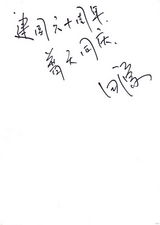 建国六十周年.
普天同庆.